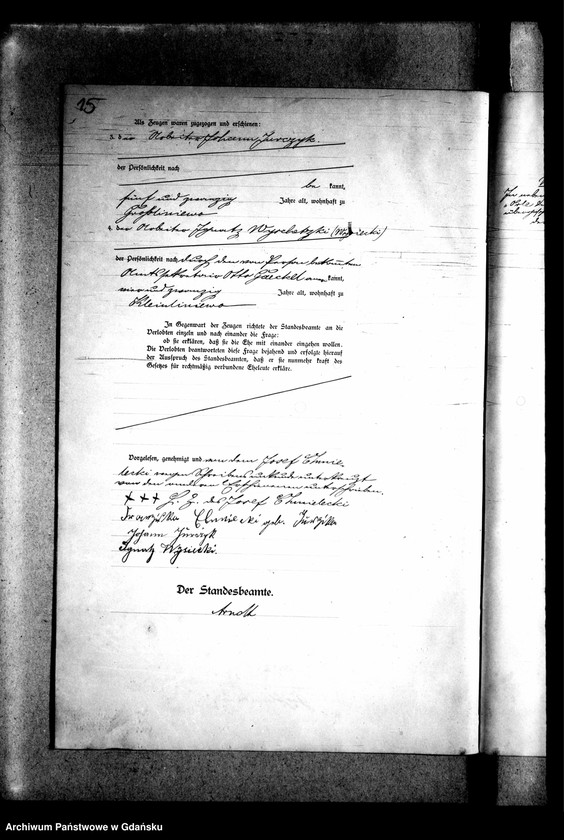 15
Als Zeugen waren zugezogen und erschienen:
3. der Arbeiter Johann Jurczyk.
der Persönlichkeit nach
be kannt,
fünf und zwanzig Jahre alt, wohnhaft zu
Großliniewo
4. der Arbeiter Ignatz
der Persönlichkeit nach durch den von Person bekannten
Otto kannt,
und zwanzig Jahre alt, wohnhaft zu
Kleinliniewo
In Gegenwart der Zeugen richtete der Standesbeamte an die
Verlobten einzeln und nach einander die Frage:
ob sie erklären, daß sie die Ehe mit einander eingehen wollen.
Die Verlobten beantworteten diese Frage bejahend und erfolgte hierauf
der Ausspruch des Standesbeamten, daß er sie nunmehr kraft des
Gesetzes für rechtmäßig verbundene Eheleute erkläre.
Vorgelesen, genehmigt und von dem Josef Chmie-
lecki wegen Schreibensunkunde unterkreuzt
von den unterschrieben.
+++ H. Z. des Josef Chmielecki
geb.
Johann Jurczyk
Ignatz
Der Standesbeamte.
Arndt
Archiwum Państwowe w Gdańsku